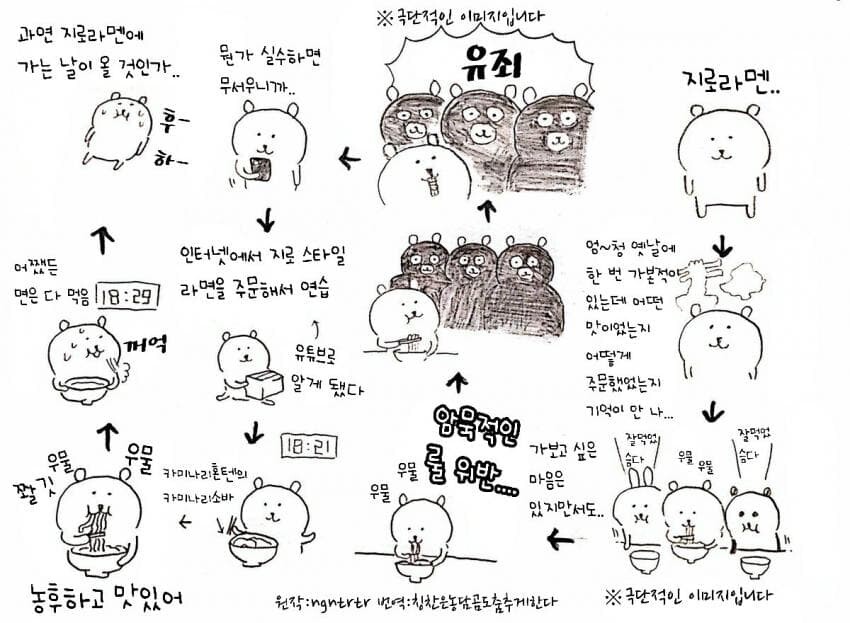 지로라멘..
엄~청 옛날에
한 번 가본적이
있는데 어떤
맛이었는지
어떻게
주문했었는지
기억이 안 나...
잘먹었
슴다
우물
우물
잘먹었
슴다
※극단적인 이미지입니다
가보고 싶은
마음은
있지만서도..
우물
우물
암묵적인
룰 위반....
※극단적인 이미지입니다
유죄
뭔가 실수하면
무서우니까..
인터넷에서 지로 스타일
라면을 주문해서 연습
유튜브로
알게 됐다
18:21
카미나리혼텐의
카미나리소바
우물
우물
쫠깃
농후하고 맛있어
어쨌든
면은 다 먹음
18:29
꺼억
과연 지로라멘에
가는 날이 올 것인가..
후-
하-
원작:ngntrtr 번역:칭찬은농담곰도춤추게한다